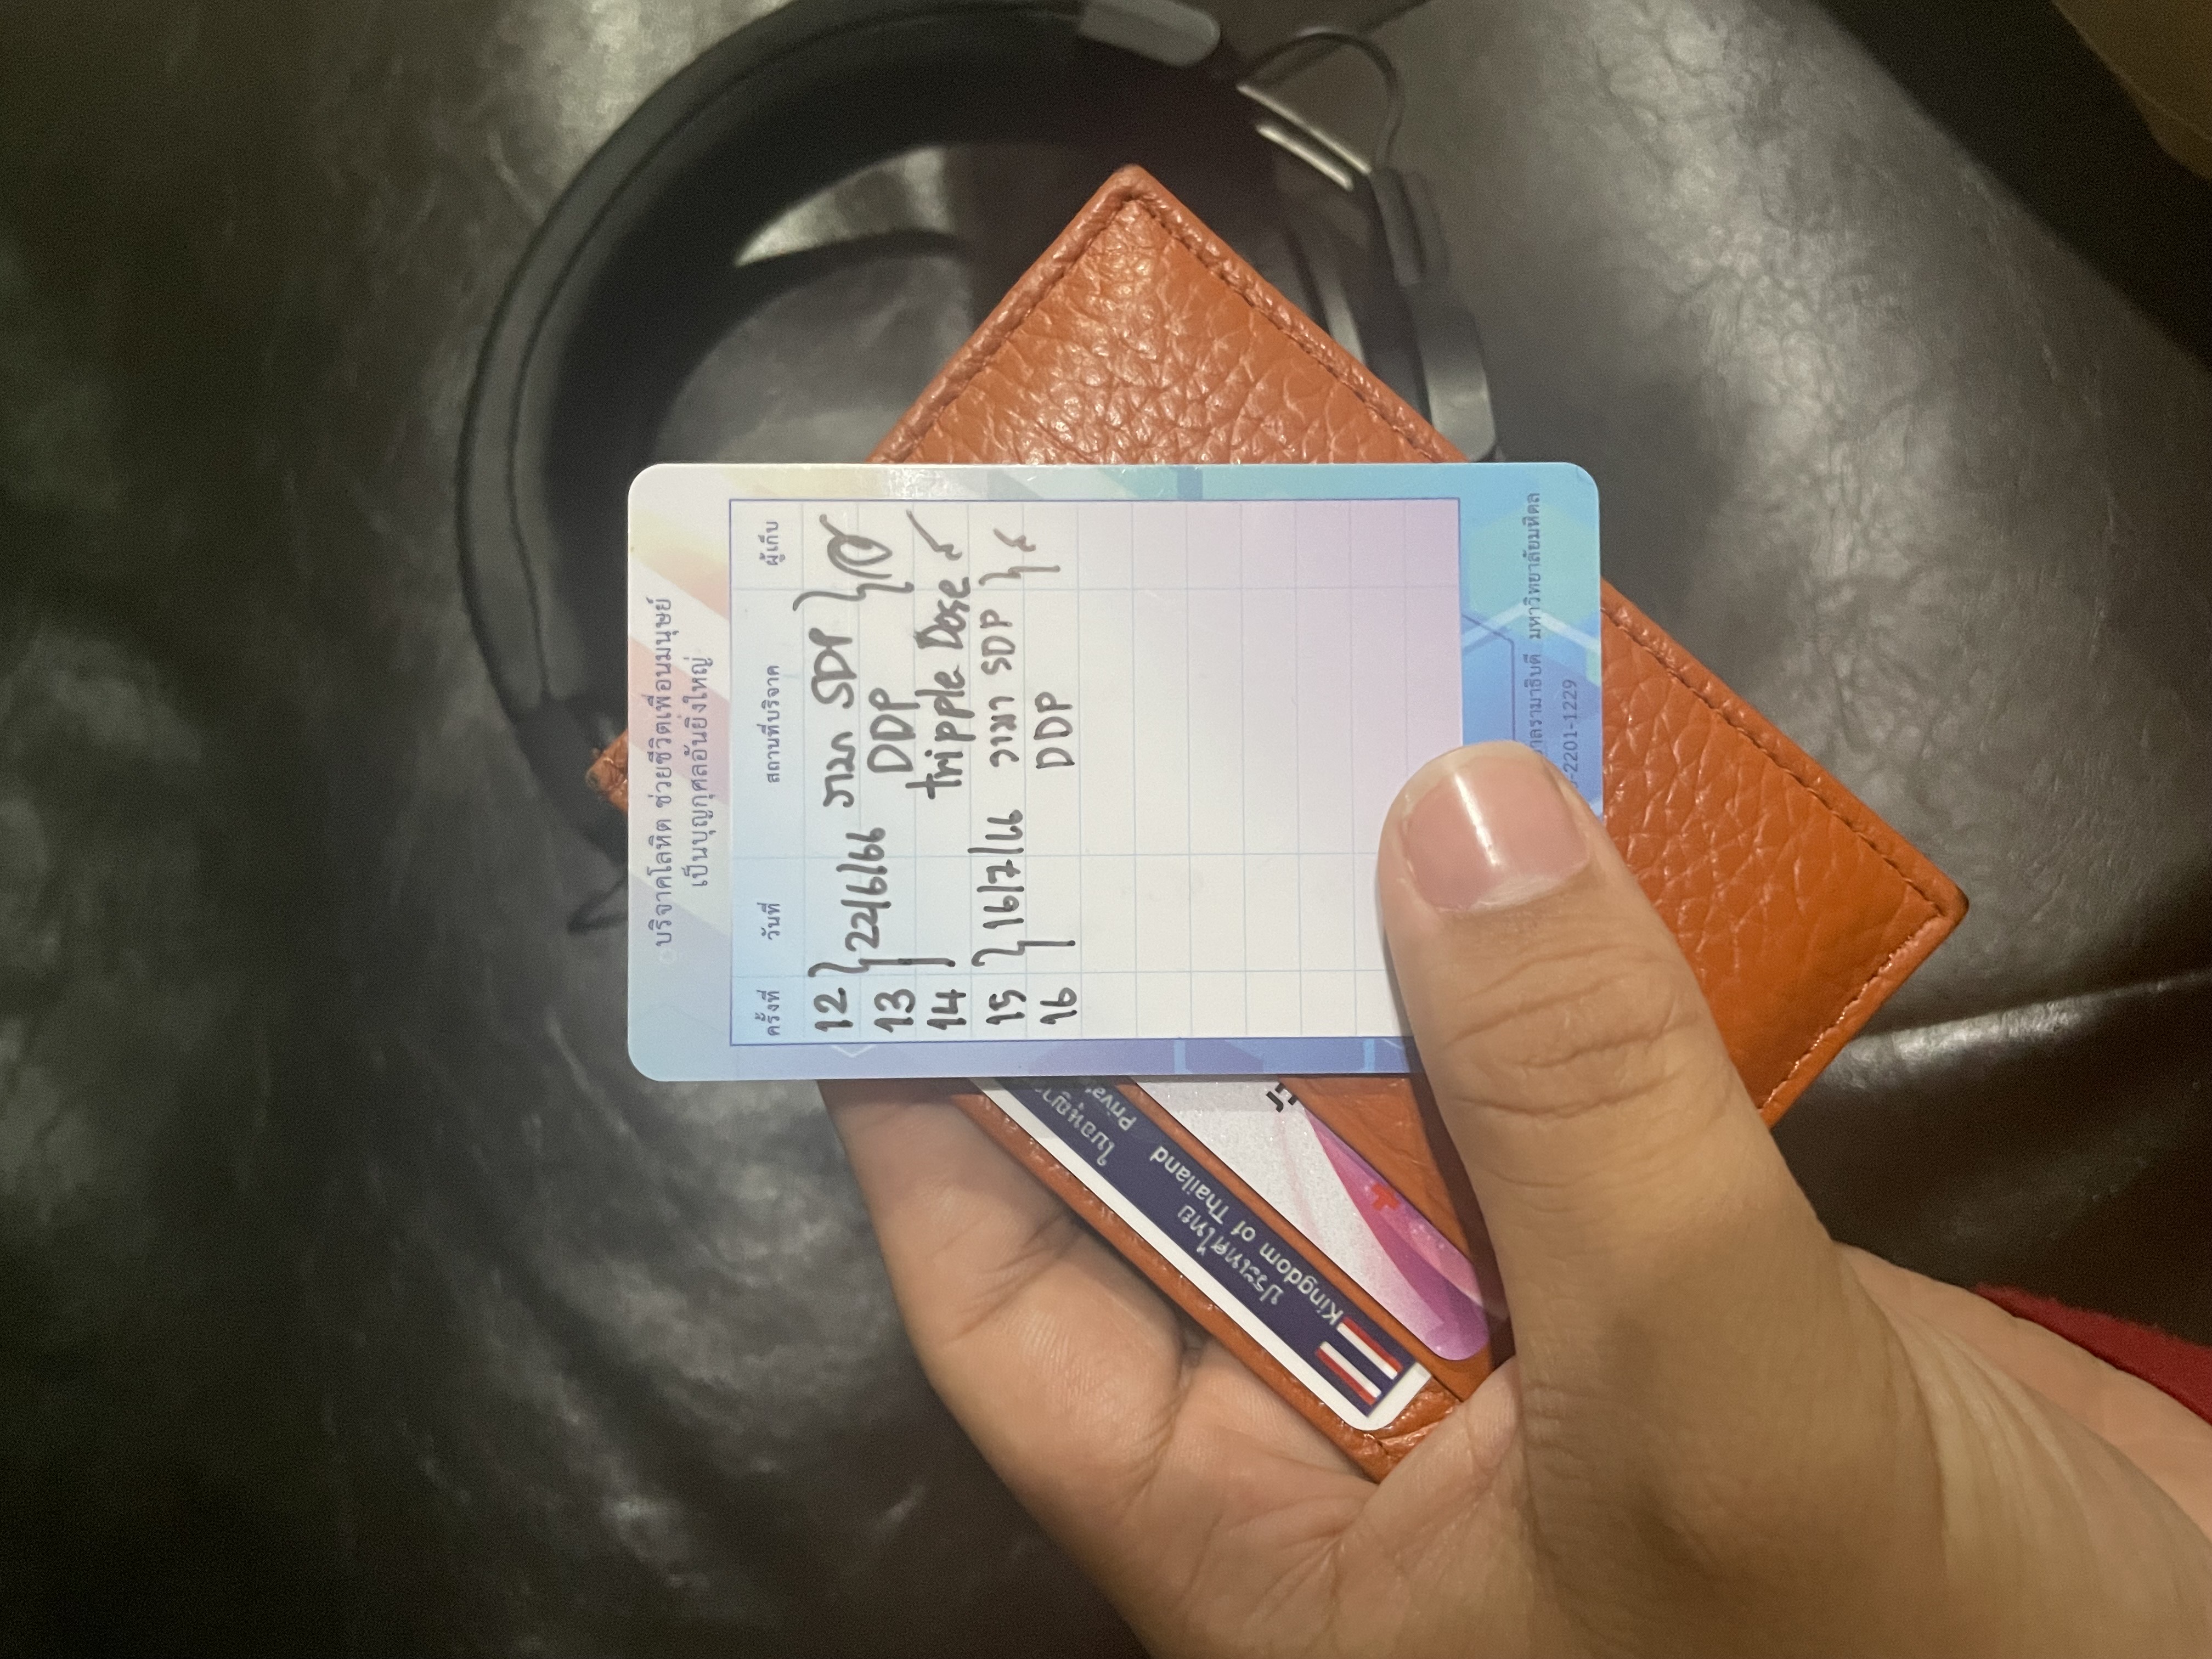 บริจาคโลหิต ช่วยชีวิตเพื่อนมนุษย์
เป็นบุญกุศลอันยิ่งใหญ่
ครั้งที่ วันที่ สถานที่บริจาค ผู้เก็บ
12 22/6/66 รามา SDP
13 DDP
14 tripple Dose
15 16/7/66 รามา SDP
16 DDP
รามาธิบดี มหาวิทยาลัยมหิดล
-2201-1229
ประเทศไทย
Kingdom of Thailand